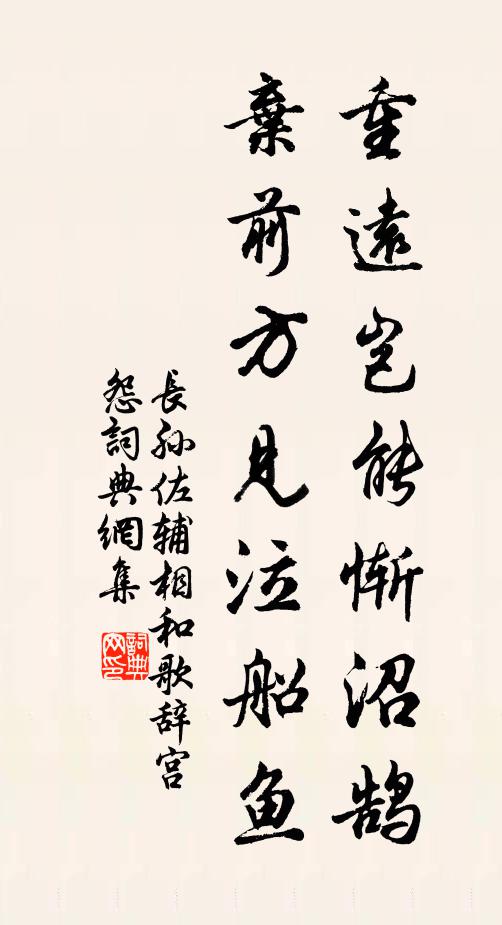 重遠豈能慚沼鵠
棄前方見泣船魚
長孙佐辅相和歌辞宫
怨詞典網集
詞典网印